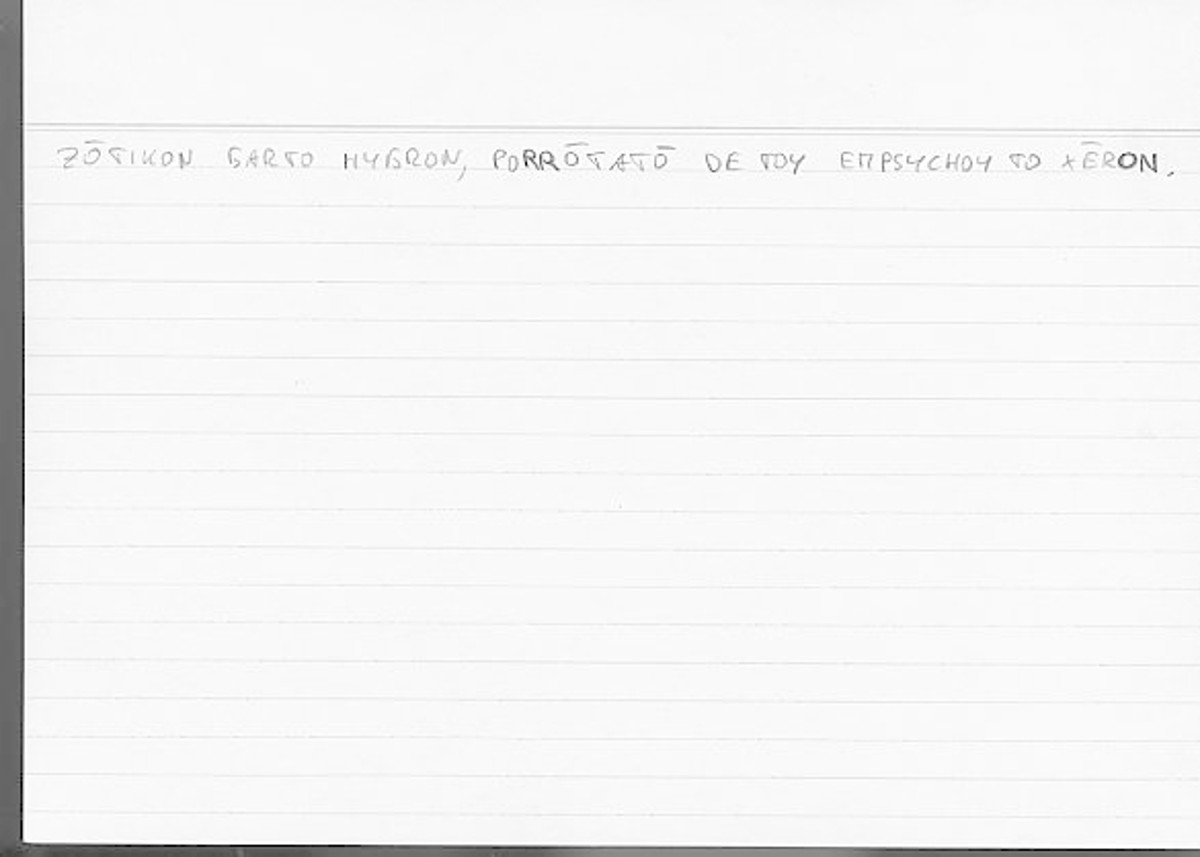 ZŌTIKON GARTO HYGRON, PORRŌTATŌ DE TOY EMPSYCHOY TO XĒRON.